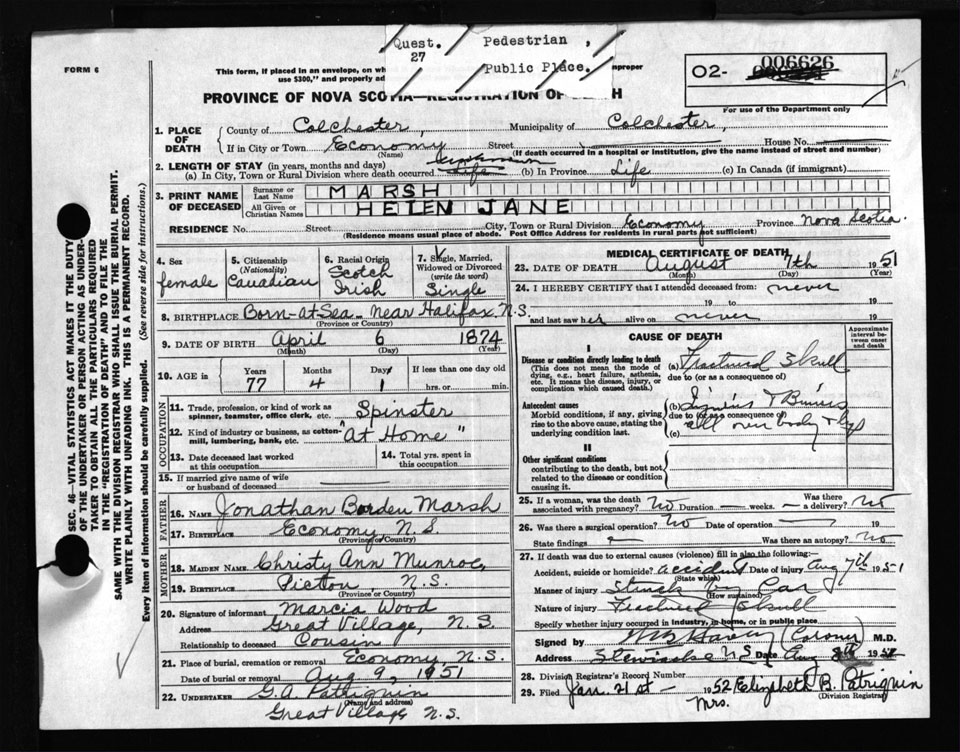 Quest. 27 Pedestrian,
Public Place.
FORM 6
This form, if placed in an envelope, on
improper
use $300," and properly
02- 006626
For use of the Department only
PROVINCE OF NOVA SCOTIA—REGISTRATION OF DEATH
1. PLACE OF DEATH
County of Colchester, Municipality of Colchester,
If in City or Town Economy Street House No.
(Name) (If death occurred in a hospital or institution, give the name instead of street and number)
2. LENGTH OF STAY (in years, months and days)
(a) In City, Town or Rural Division where death occurred Life (b) In Province Life (c) In Canada (if immigrant)
3. PRINT NAME OF DECEASED
Surname or Last Name MARSH
All Given or Christian Names HELEN JANE
RESIDENCE No. Street City, Town or Rural Division Economy Province Nova Scotia.
(Residence means usual place of abode. Post Office Address for residents in rural parts not sufficient)
4. Sex female
5. Citizenship (Nationality) Canadian
6. Racial Origin Scotch Irish
7. Single, Married, Widowed or Divorced (write the word) Single
8. BIRTHPLACE Born-at-Sea-Near Halifax N.S.
(Province or Country)
9. DATE OF BIRTH April 6 1874
(Month) (Day) (Year)
10. AGE in Years 77 Months 4 Days 1 If less than one day old hrs. or min.
OCCUPATION
11. Trade, profession, or kind of work as spinner, teamster, office clerk, etc. Spinster
12. Kind of industry or business, as cotton-mill, lumbering, bank, etc. "At Home"
13. Date deceased last worked at this occupation
14. Total yrs. spent in this occupation
15. If married give name of wife or husband of deceased
FATHER
16. NAME Jonathan Borden Marsh
17. BIRTHPLACE Economy N.S.
(Province or Country)
MOTHER
18. MAIDEN NAME Christy Ann Munroe
19. BIRTHPLACE Pictou N.S.
(Province or Country)
20. Signature of informant Marcia Wood
Address Great Village, N.S.
Relationship to deceased Cousin
21. Place of burial, cremation or removal Economy, N.S.
Date of burial or removal Aug 9, 1951
22. UNDERTAKER G.A. Patriquin
(Name and address)
Great Village N.S.
MEDICAL CERTIFICATE OF DEATH
23. DATE OF DEATH August 7th 1951
(Month) (Day) (Year)
24. I HEREBY CERTIFY that I attended deceased from: never
19 to 19
and last saw her alive on never 19
CAUSE OF DEATH
Approximate interval between onset and death
I
Disease or condition directly leading to death
(This does not mean the mode of dying, e.g., heart failure, asthenia, etc. It means the disease, injury, or complication which caused death.)
(a) Fractured Skull
due to (or as a consequence of)
Antecedent causes
Morbid conditions, if any, giving rise to the above cause, stating the underlying condition last.
(b) Injuries & Bruises
due to (or as a consequence of)
(c) all over body & legs
II
Other significant conditions
contributing to the death, but not related to the disease or condition causing it.
25. If a woman, was the death associated with pregnancy? No Duration weeks. Was there a delivery? No
26. Was there a surgical operation? No Date of operation 19
State findings Was there an autopsy? No
27. If death was due to external causes (violence) fill in also the following:
Accident, suicide or homicide? accident Date of injury Aug 7th 1951
(State which)
Manner of injury Struck by Car
(How sustained)
Nature of injury Fractured Skull
Specify whether injury occurred in industry, in home, or in public place
Signed by (Coroner) M.D.
Address Stewiacke N.S. Date Aug 19
28. Division Registrar's Record Number
29. Filed Jan. 21st - 1952 Elizabeth B. Patriquin
Mrs. (Division Registrar)
SEC. 46—VITAL STATISTICS ACT MAKES IT THE DUTY
OF THE UNDERTAKER OR PERSON ACTING AS UNDER-
TAKER TO OBTAIN ALL THE PARTICULARS REQUIRED
IN THE "REGISTRATION OF DEATH" AND TO FILE THE
SAME WITH THE DIVISION REGISTRAR WHO SHALL ISSUE THE BURIAL PERMIT.
WRITE PLAINLY WITH UNFADING INK. THIS IS A PERMANENT RECORD.
Every item of information should be carefully supplied. (See reverse side for instructions.)